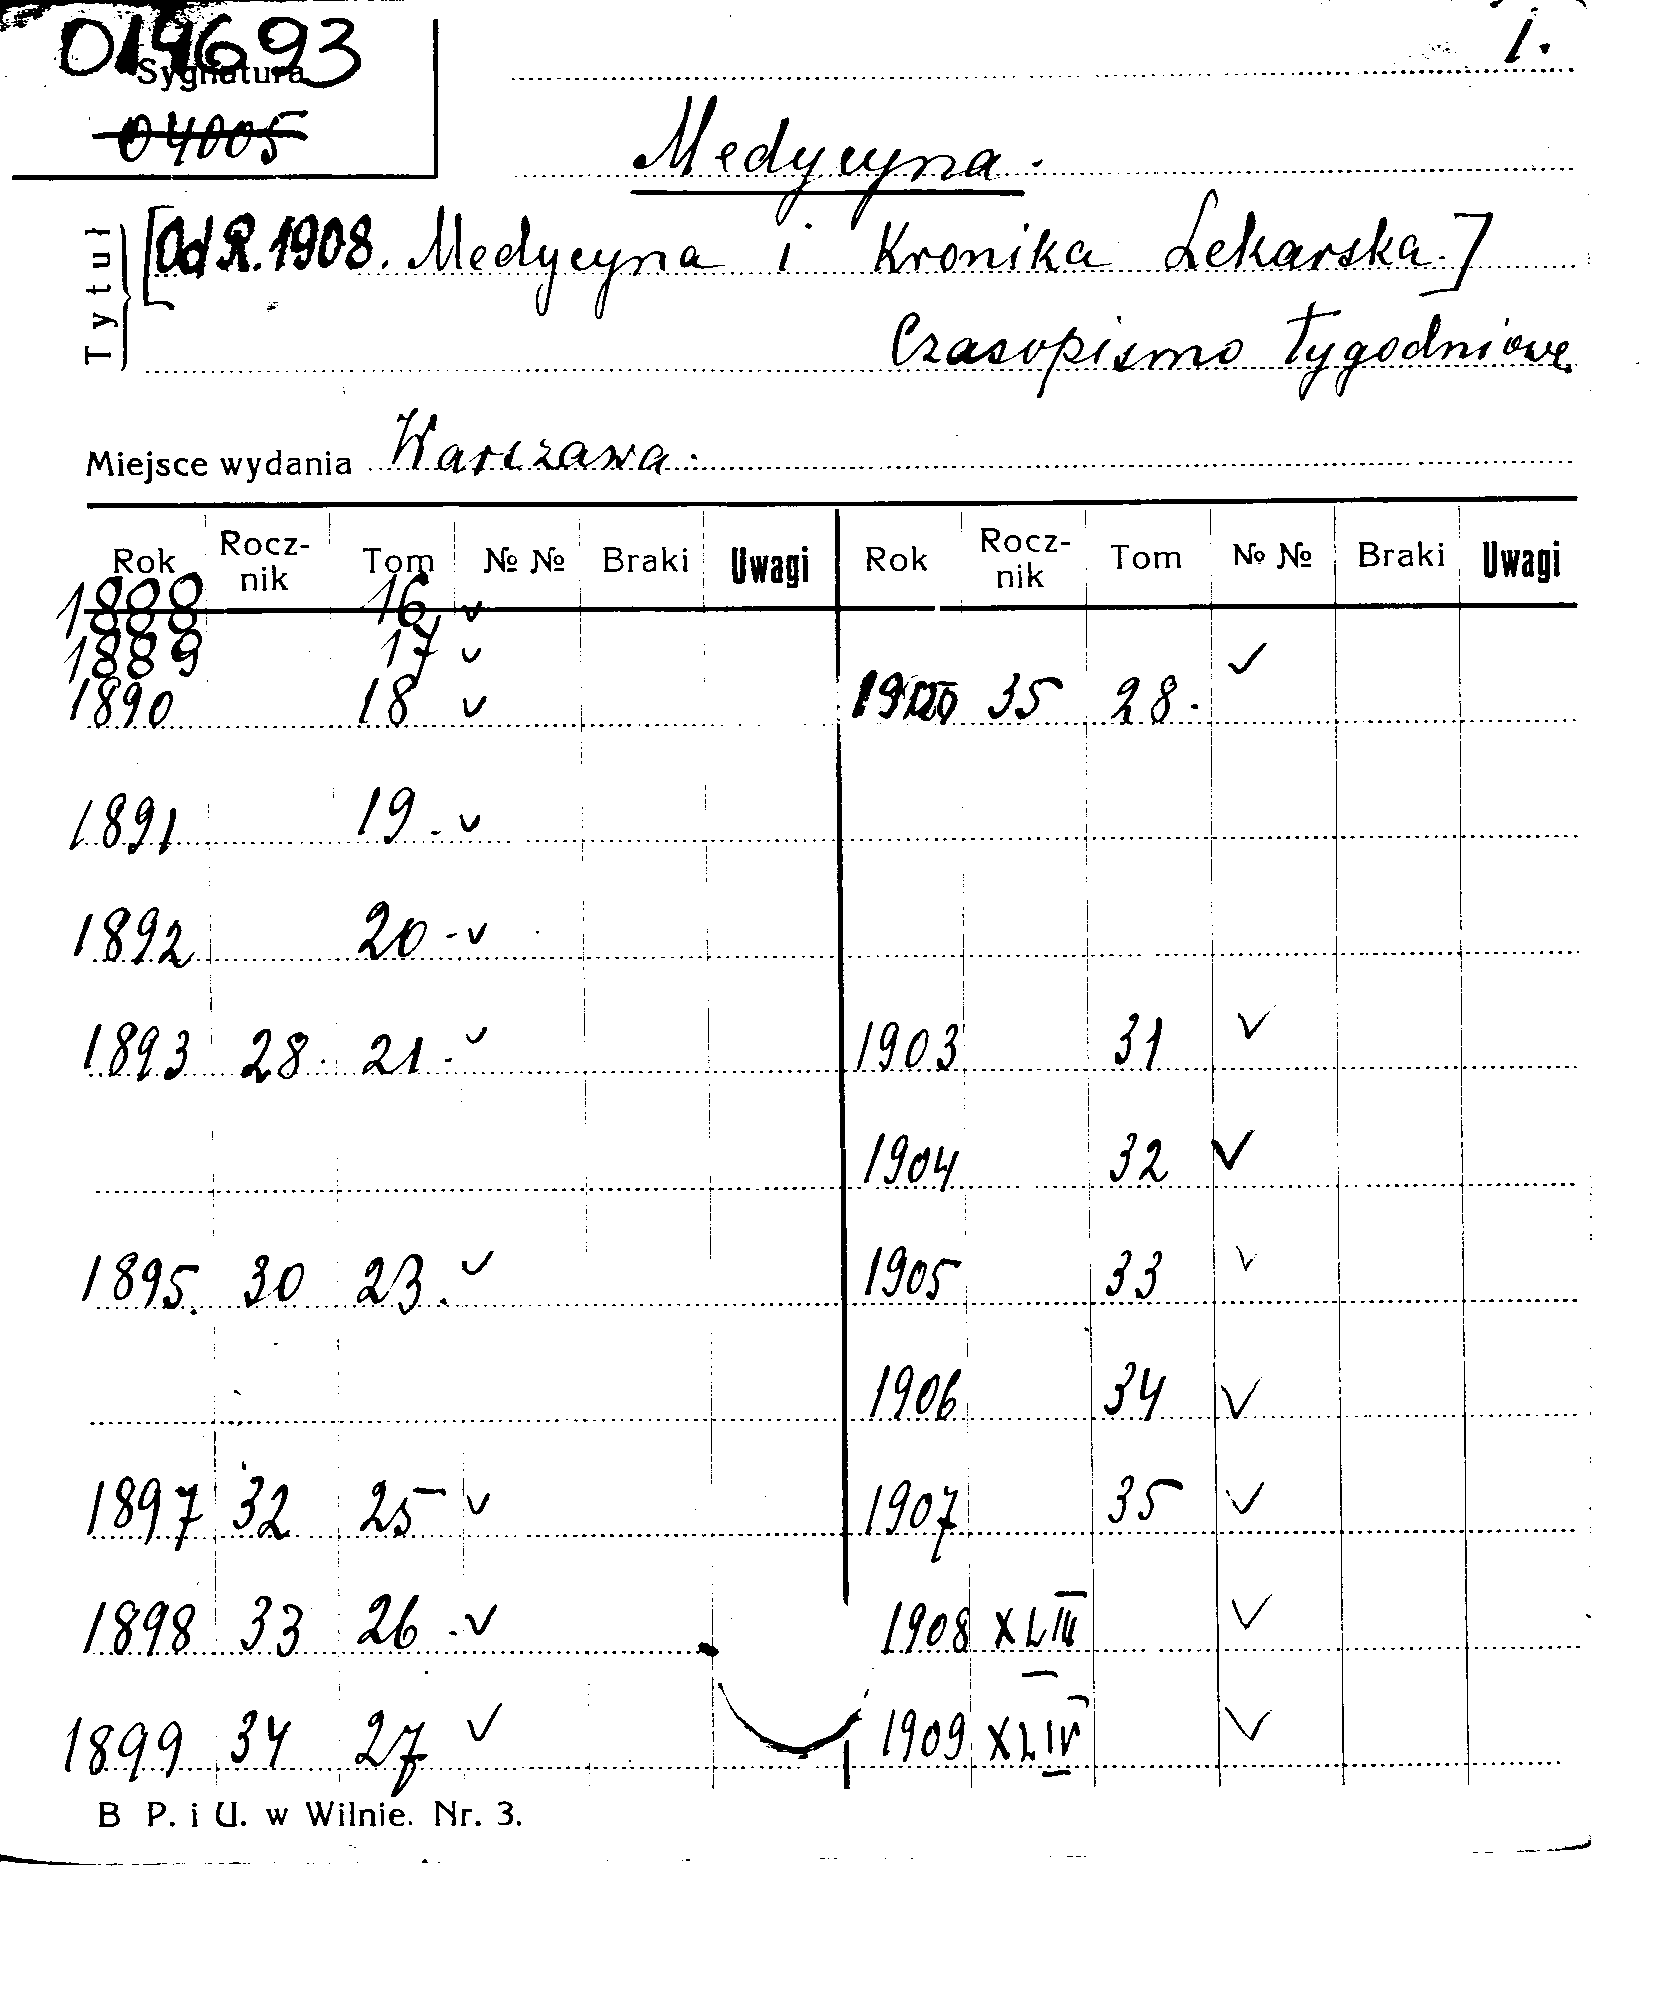 019693
1.
Sygnatura
04005
Medycyna.
Tytuł
[Od R. 1908. Medycyna i Kronika Lekarska.]
Czasopismo tygodniowe
Miejsce wydania Warszawa.
Rok Rocz-nik Tom № № Braki Uwagi Rok Rocz-nik Tom № № Braki Uwagi
1888 16 v
1889 17 v
1890 18 v 35 28. v
1891 19. v
1892 20 - v
1893 28. 21. v 1903 31 v
1904 32 v
1895. 30 23. v 1905 33 v
1906 34 v
1897 32 25 v 1907 35 v
1898 33 26. v 1908 XLIII v
1899 34 27 v 1909 XLIV v
B P. i U. w Wilnie. Nr. 3.